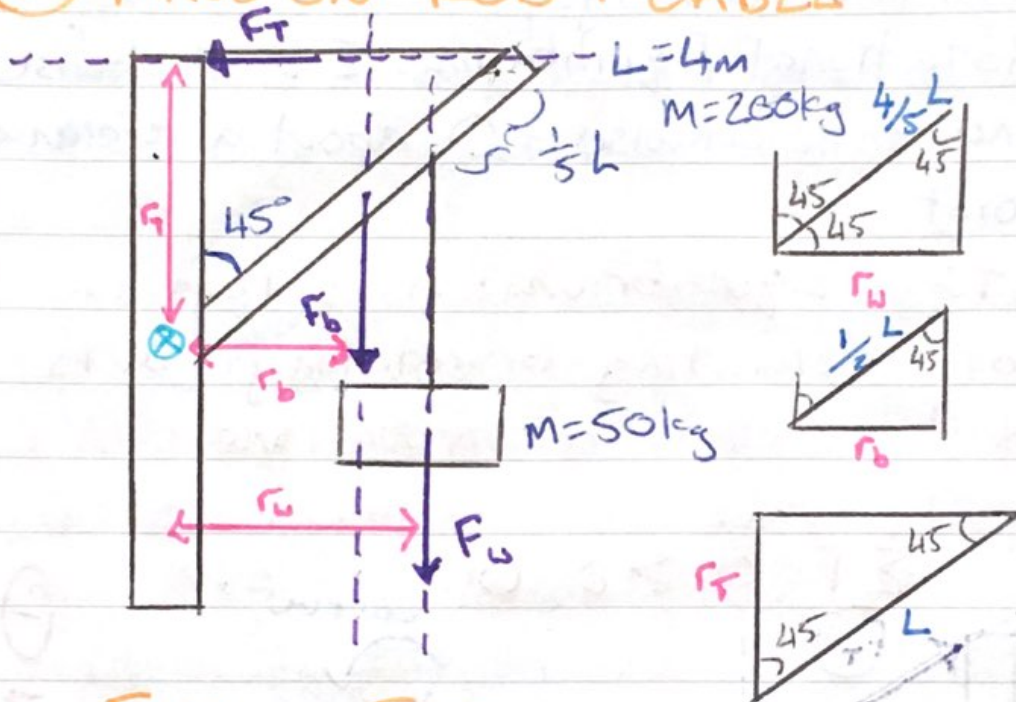 FT
L = 4m
M = 200kg
1/5 L
45°
rT
Fb
rb
M = 50kg
rw
Fw
4/5 L
45
45
45
rw
1/2 L
45
rb
45
rT
45
L